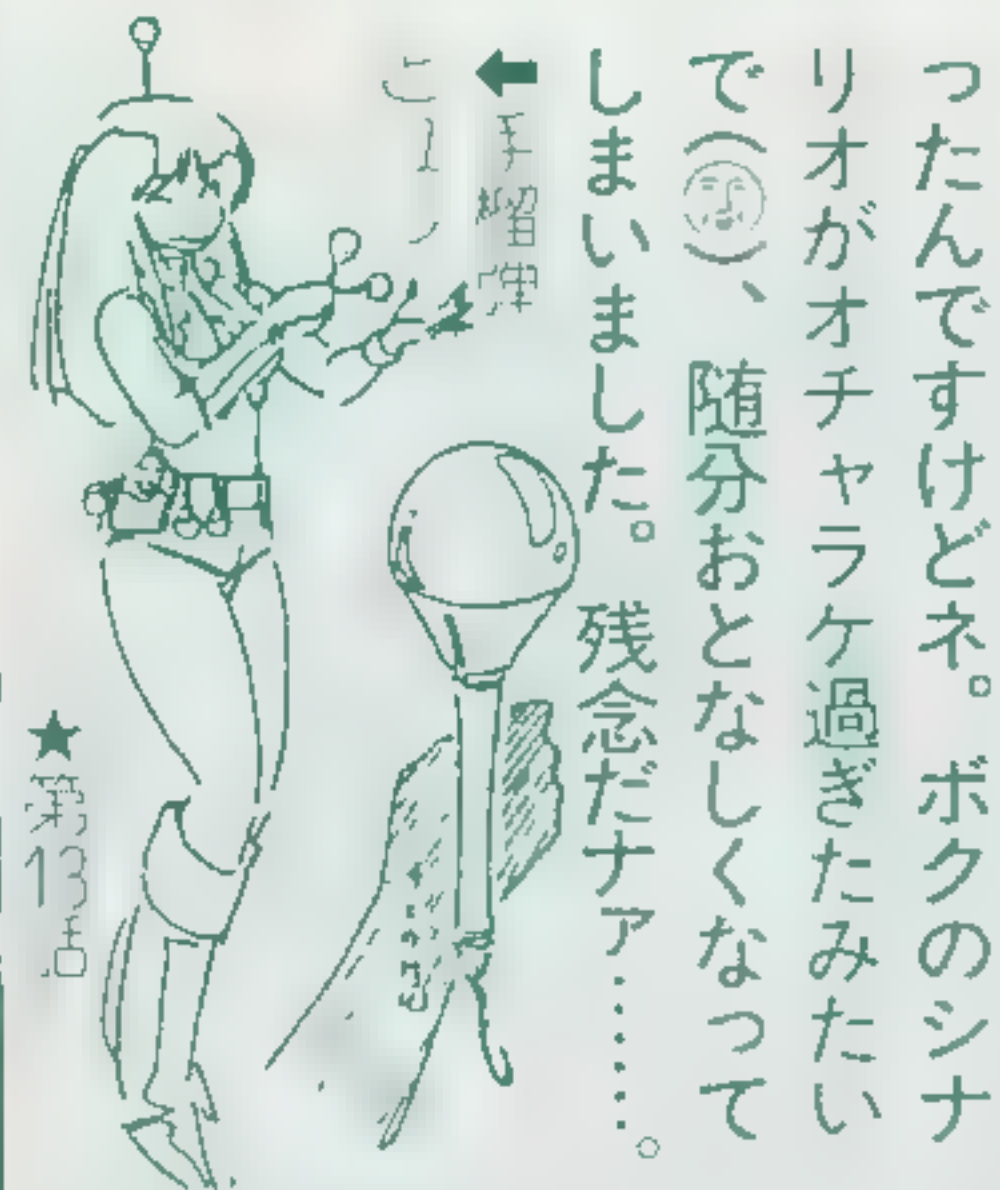 ったんですけどネ。ボクのシナ
リオがオチャラケ過ぎたみたい
で(　)、随分おとなしくなって
しまいました。残念だナァ……。
←手榴弾
★第13話